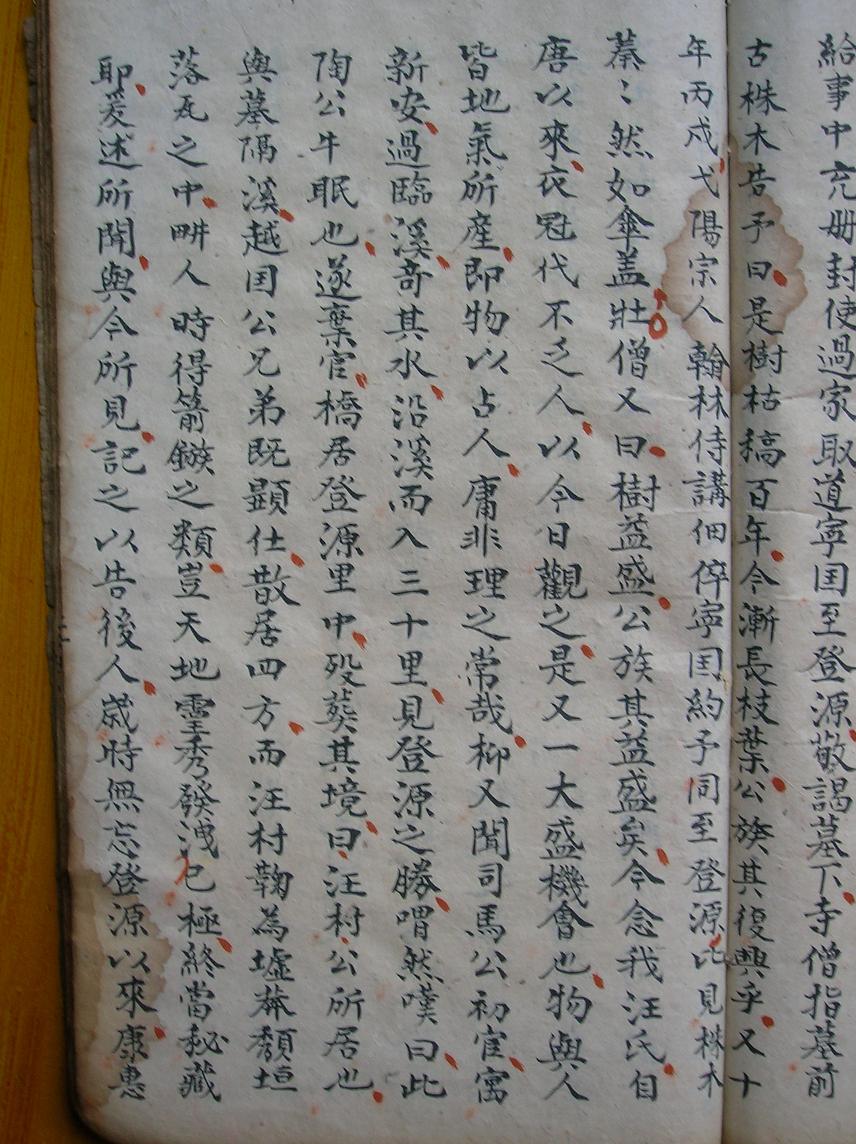 給事中充册封使過家取道寧国至登源敬謁墓下寺僧指墓前
古株木告予曰是樹枯稿百年今漸長枝葉公族其復興乎又十
年丙戍弋陽宗人翰林侍講佃倅寧国約予同至登源比見株木
蓁〻然如傘盖壯僧又曰樹益盛公族其益盛矣今念我汪氏自
唐以來衣冠代不乏人以今日觀之是又一大盛機會也物與人
皆地氣所産即物以占人庸非理之常哉柳又聞司馬公初宦寓
新安過臨溪奇其水沿溪而入三十里見登源之勝喟然嘆曰此
陶公牛眠也遂棄官橋居登源里中殁葵其境曰汪村公所居也
與墓隔溪越国公兄弟既顕仕散居四方而汪村鞠為墟莽頽垣
落瓦之中畊人時得箭鏃之類豈天地霊秀發洩已極終當秘藏
耶爰述所聞與今所見記之以告後人歲時無忘登源以來康惠